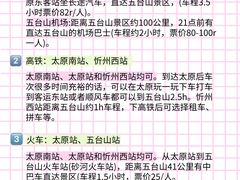 原东客站坐长途汽车，直达五台山景区，(车程3.5
小时票价82r/人)。
五台山机场:距离五台山景区约100公里，21点前有
直达五台山的机场巴士(车程约2小时，票价80-100r
一人)。
2 高铁：太原南站、忻州西站
太原南站、太原站和忻州西站均可。到达太原后车
次很多时间充裕的话，可以在太原玩一玩下车打车
到客运东站或者顺风车都可以到五台山2.5h。忻州
西站距离五台山约1h车程，下高铁后可选择租车、
拼车等。
3 火车：太原站、五台山站
太原南站、太原站和忻州西站均可。从太原站到五
台山火车站(砂河火车站)，距离五台山41公里有中
巴车直达景区(车程1.5小时，票价25/人)。